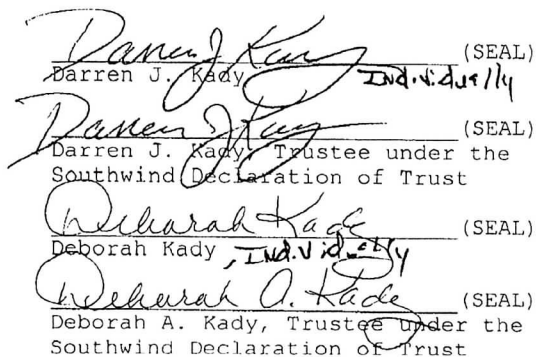 Darren J Kady (SEAL)
Darren J. Kady Individually
Darren J Kady (SEAL)
Darren J. Kady, Trustee under the
Southwind Declaration of Trust
Deborah Kady (SEAL)
Deborah Kady , Individually
Deborah A. Kady (SEAL)
Deborah A. Kady, Trustee under the
Southwind Declaration of Trust